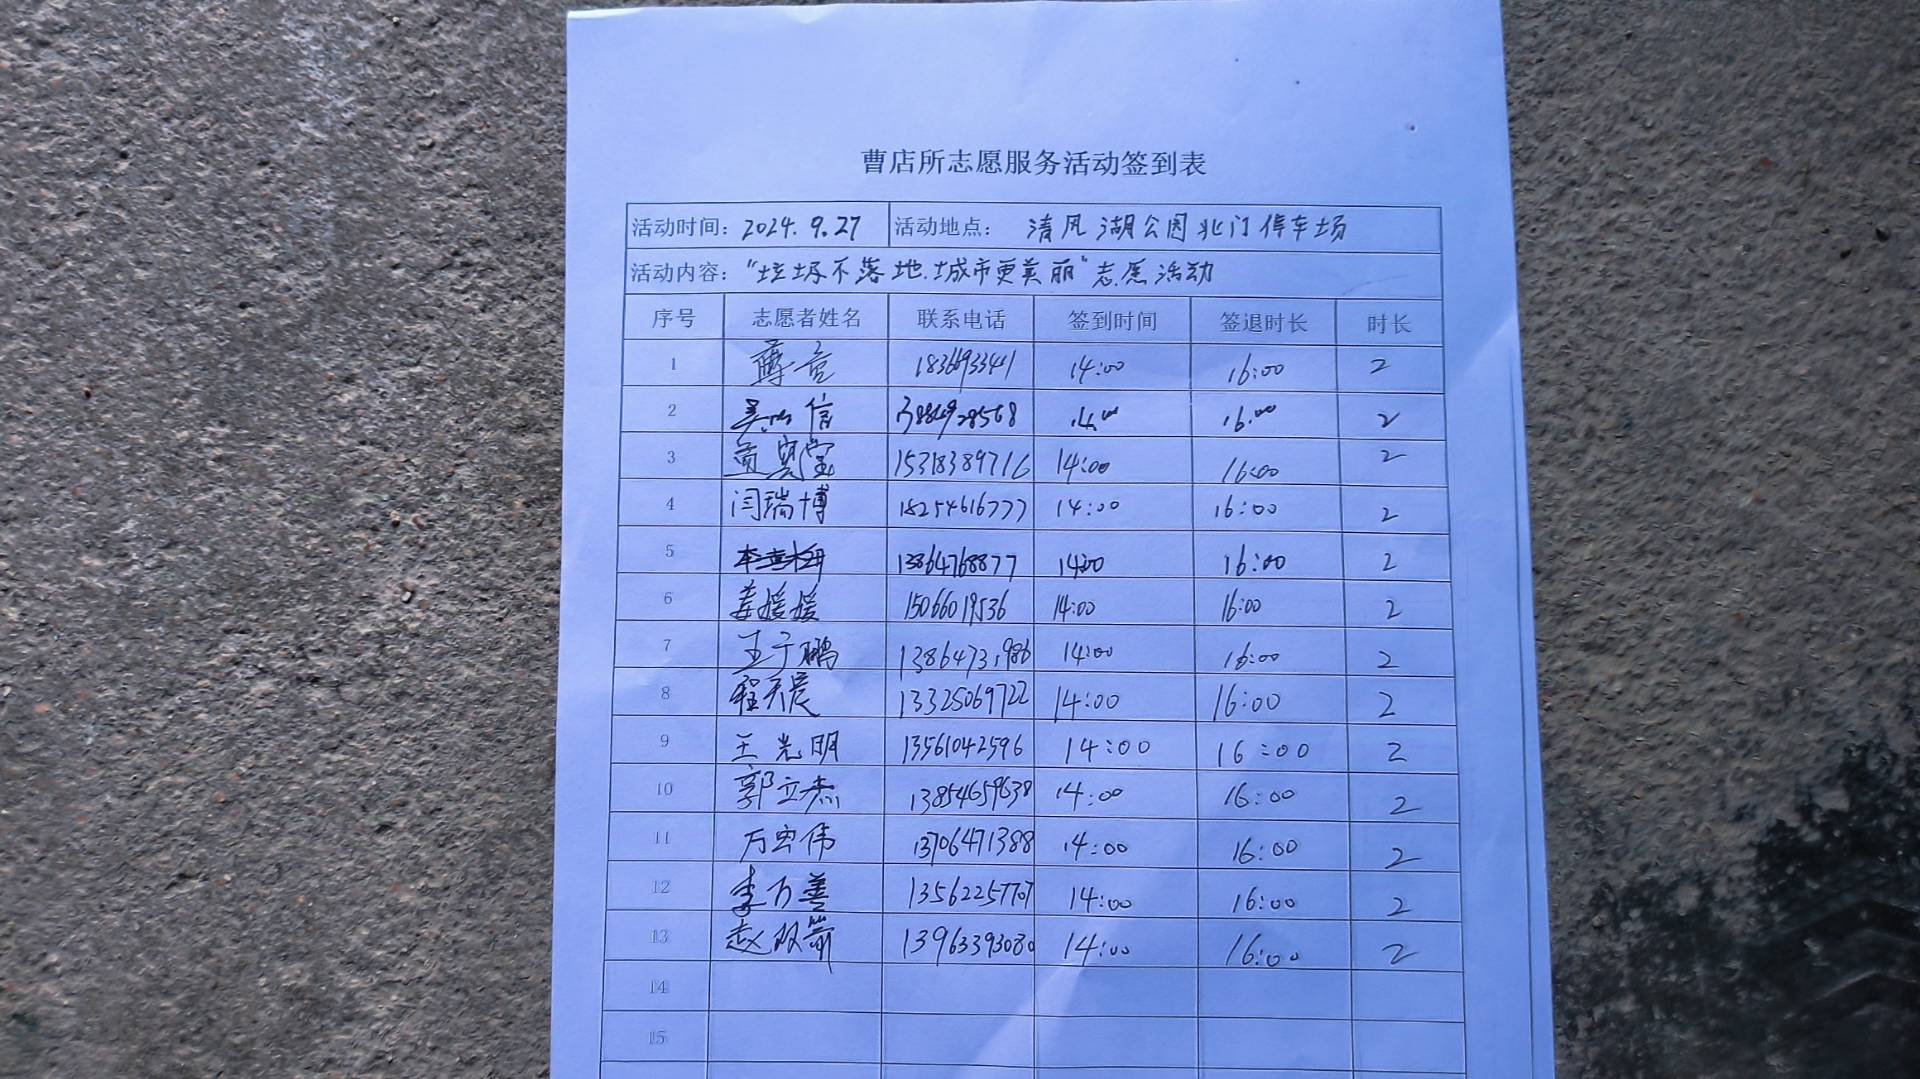 曹店所志愿服务活动签到表
活动时间: 2024.9.27 活动地点: 清风湖公园北门停车场
活动内容: "垃圾不落地.城市更美丽"志愿活动
序号 志愿者姓名 联系电话 签到时间 签退时长 时长
1 薛 14:00 16:00 2
2 信 14:00 16:00 2
3 15318389716 14:00 16:00 2
4 闫瑞博 18254616777 14:00 16:00 2
5 13864768877 14:00 16:00 2
6 姜媛媛 15066019536 14:00 16:00 2
7 王于鹏 13864731986 14:00 16:00 2
8 程天晨 13325069722 14:00 16:00 2
9 王光明 13561042596 14:00 16:00 2
10 郭立杰 13854659638 14:00 16:00 2
11 万宏伟 13706471388 14:00 16:00 2
12 李万善 13562257707 14:00 16:00 2
13 赵双 13963393080 14:00 16:00 2
14
15